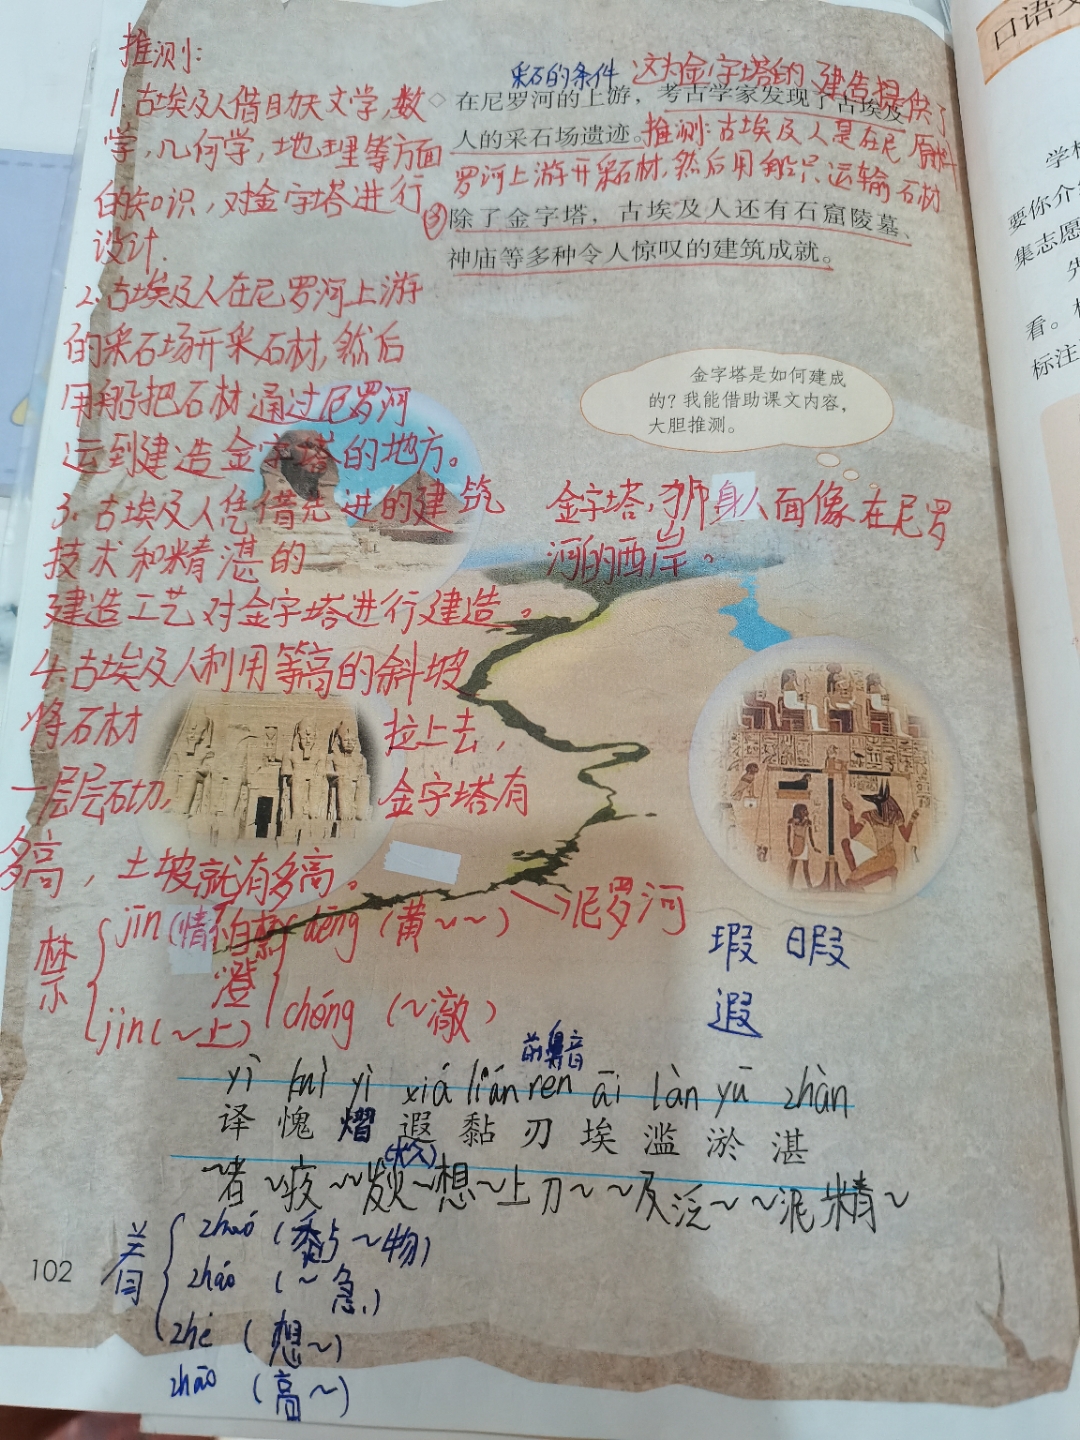 推测:
1.古埃及人借助天文学,数
学,几何学,地理等方面
的知识,对金字塔进行
设计.
2.古埃及人在尼罗河上游
的采石场开采石材,然后
用船把石材通过尼罗河
运到建造金字塔的地方。
3.古埃及人凭借先进的建筑
技术和精湛的
建造工艺对金字塔进行建造。
4.古埃及人利用等高的斜坡
将石材 拉上去,
一层层石切, 金字塔有
多高,土坡就有多高。
采石的条件 这为金字塔的建造提供了
原料
◇ 在尼罗河的上游,考古学家发现了古埃及
人的采石场遗迹。推测:古埃及人是在尼
罗河上游开采石材,然后用船只运输石材
③除了金字塔,古埃及人还有石窟陵墓、
神庙等多种令人惊叹的建筑成就。
金字塔是如何建成
的?我能借助课文内容,
大胆推测。
金字塔,狮身人面像在尼罗
河的西岸。
尼罗河
禁 jīn (情不自禁)
jìn (~上)
澄 dèng (黄~~)
chéng (~澈)
瑕 暇
遐
前鼻音
yì kuì yì xiá nián rèn āi làn yū zhàn
译 愧 熠 遐 黏 刃 埃 滥 淤 湛
~者 ~疚 ~~ ~想 ~上 刀~ ~及 泛~ ~泥 精~
着 zhuó (黏~物)
zháo (~急)
zhe (想~)
zhāo (高~)
102
口语交
学校
要你介绍
集志愿
先
看。
标注